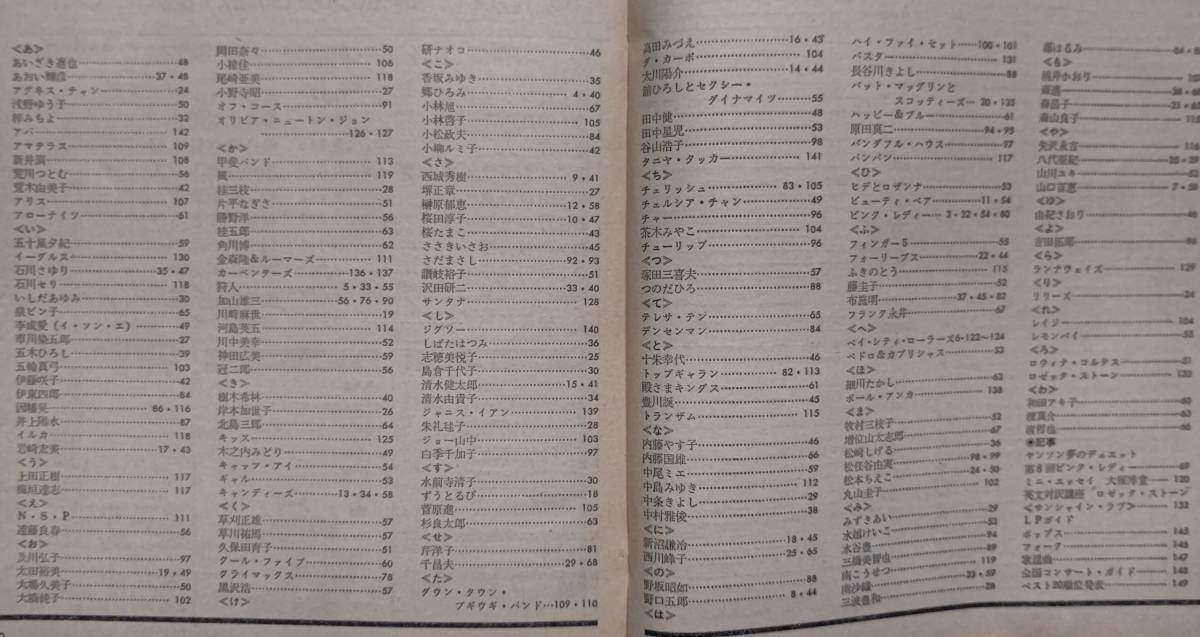 <あ>
あいざき進也……48
あおい輝彦……37・48
アグネス・チャン……24
浅野ゆう子……50
梓みちよ……32
アバ……142
アマテラス……109
新井満……108
荒川つとむ……56
荒木由美子……42
アリス……107
アローナイツ……61
<い>
五十嵐夕紀……59
イーグルス……130
石川さゆり……35・47
石川セリ……118
いしだあゆみ……30
泉ピン子……65
李成愛（イ・ソン・エ）……49
市川染五郎……27
五木ひろし……39
五輪真弓……103
伊藤咲子……42
伊東四郎……84
因幡晃……86・116
井上陽水……87
イルカ……118
岩崎宏美……17・43
<う>
上田正樹……117
梅垣達志……117
<え>
N・S・P……111
遠藤良春……56
<お>
及川弘子……97
太田裕美……19・49
大場久美子……50
大橋純子……102
岡田奈々……50
小椋佳……106
尾崎亜美……118
小野寺昭……27
オフ・コース……91
オリビア・ニュートン・ジョン
……126・127
<か>
甲斐バンド……113
風……119
桂三枝……28
片平なぎさ……51
勝野洋……56
桂五郎……63
角川博……62
金森隆&ルーマーズ……111
カーペンターズ……136・137
狩人……5・33・55
加山雄三……56・76・90
川崎麻世……19
河島英五……114
川中美幸……52
神田広美……59
冠二郎……56
<き>
樹木希林……40
岸本加世子……26
北島三郎……64
キッス……125
木之内みどり……49
キャッツ・アイ……54
ギャル……53
キャンディーズ……13・34・58
<く>
草刈正雄……57
草川祐馬……57
久保田育子……51
クール・ファイブ……60
クライマックス……78
黒沢浩……57
<け>
研ナオコ……46
<こ>
香坂みゆき……35
郷ひろみ……4・40
小林旭……67
小林啓子……105
小松政夫……84
小柳ルミ子……42
<さ>
西城秀樹……9・41
堺正章……27
榊原郁恵……12・58
桜田淳子……10・47
桜たまこ……43
ささきいさお……45
さだまさし……92・93
讃岐裕子……51
沢田研二……33・40
サンタナ……128
<し>
ジグソー……140
しばたはつみ……36
志穂美悦子……25
島倉千代子……30
清水健太郎……15・41
清水由貴子……34
ジャニス・イアン……139
朱礼毬子……28
ジョー山中……103
白季千加子……97
<す>
水前寺清子……30
ずうとるび……18
菅原進……105
杉良太郎……63
<せ>
芹洋子……81
千昌夫……29・68
<た>
ダウン・タウン・
ブギウギ・バンド…109・110
高田みづえ……16・43
ダ・カーポ……104
太川陽介……14・44
舘ひろしとセクシー・
ダイナマイツ……55
田中健……48
田中星児……53
谷山浩子……98
タニヤ・タッカー……141
<ち>
チェリッシュ……83・105
チェルシア・チャン……49
チャー……96
茶木みやこ……104
チューリップ……96
<つ>
塚田三喜夫……57
つのだひろ……88
<て>
テレサ・テン……65
デンセンマン……84
<と>
十朱幸代……46
トップギャラン……82・113
殿さまキングス……61
豊川誕……45
トランザム……115
<な>
内藤やす子……46
内藤国雄……66
中尾ミエ……59
中島みゆき……112
中条きよし……29
中村雅俊……38
<に>
新沼謙治……18・45
西川峰子……25・65
<の>
野坂昭如……88
野口五郎……8・44
<は>
ハイ・ファイ・セット……100・101
バスター……131
長谷川きよし……88
パット・マッグリンと
スコッティーズ…20・135
ハッピー&ブルー……61
原田真二……94・95
バンダフル・ハウス……97
バンバン……117
<ひ>
ヒデとロザンナ……53
ビューティ・ペア……11・54
ピンク・レディー…3・32・54・80
<ふ>
フィンガー5……55
フォーリーブス……22・44
ふきのとう……115
藤圭子……52
布施明……37・45・82
フランク永井……67
<へ>
ベイ・シティ・ローラーズ6・122〜124
ペドロ&カプリシャス……53
<ほ>
細川たかし……63
ポール・アンカ……138
<ま>
牧村三枝子……52
増位山太志郎……67
松崎しげる……36
松任谷由実……98・99
松本ちえこ……24・50
丸山圭子……102
<み>
みずきあい……29
水越けいこ……53
水谷豊……94
三橋美智也……89
南こうせつ……119
南沙織……23・59
三波豊和……28
都はるみ……64・
<も>
桃井かおり……102
森進一……28・68
森昌子……21・
森山良子……115
<や>
矢沢永吉……116
八代亜紀……25・29
山川ユキ……52
山口百恵……7・58
<ゆ>
由紀さおり……46
<よ>
吉田拓郎……88
<ら>
ランナウェイズ……129
<り>
リリーズ……24
<れ>
レイジー……104
レモンパイ……55
<ろ>
ロウィナ・コルテス……51
ロゼッタ・ストーン……132
<わ>
和田アキ子……60
渡真介……63
渡哲也……66
◉記事
ヤンソン夢のデュエット
第8回ピンク・レディー……69
ミニ・エッセイ 大塚博堂……120
英文対訳講座 ロゼッタ・ストーン
〈サンシャイン・ラヴ〉……132
LPガイド
ポップス……145
フォーク……145
歌謡曲……147
全国コンサート・ガイド……148
ベスト20順位発表……149